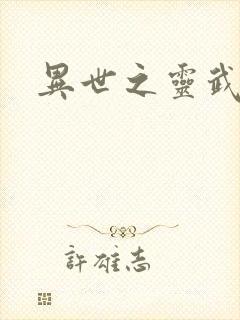 異世之靈武
許雄志